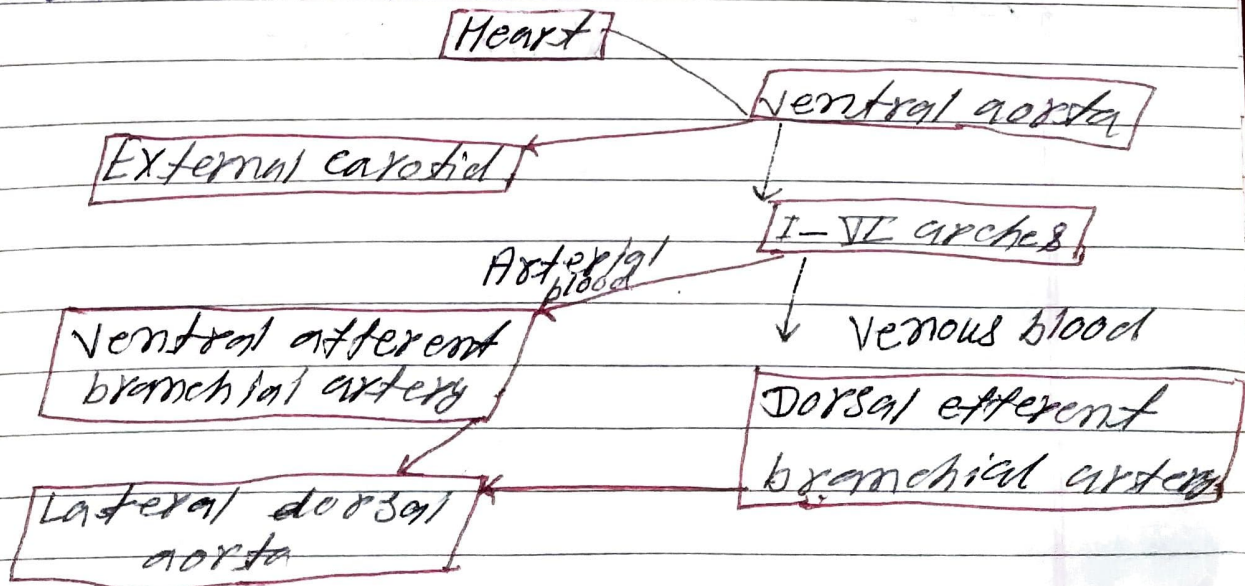 Heart
ventral aorta
External carotid
I-VI arches
Arterial
blood
Venous blood
Ventral afferent
branchial artery
Dorsal efferent
branchial artery
Lateral dorsal
aorta